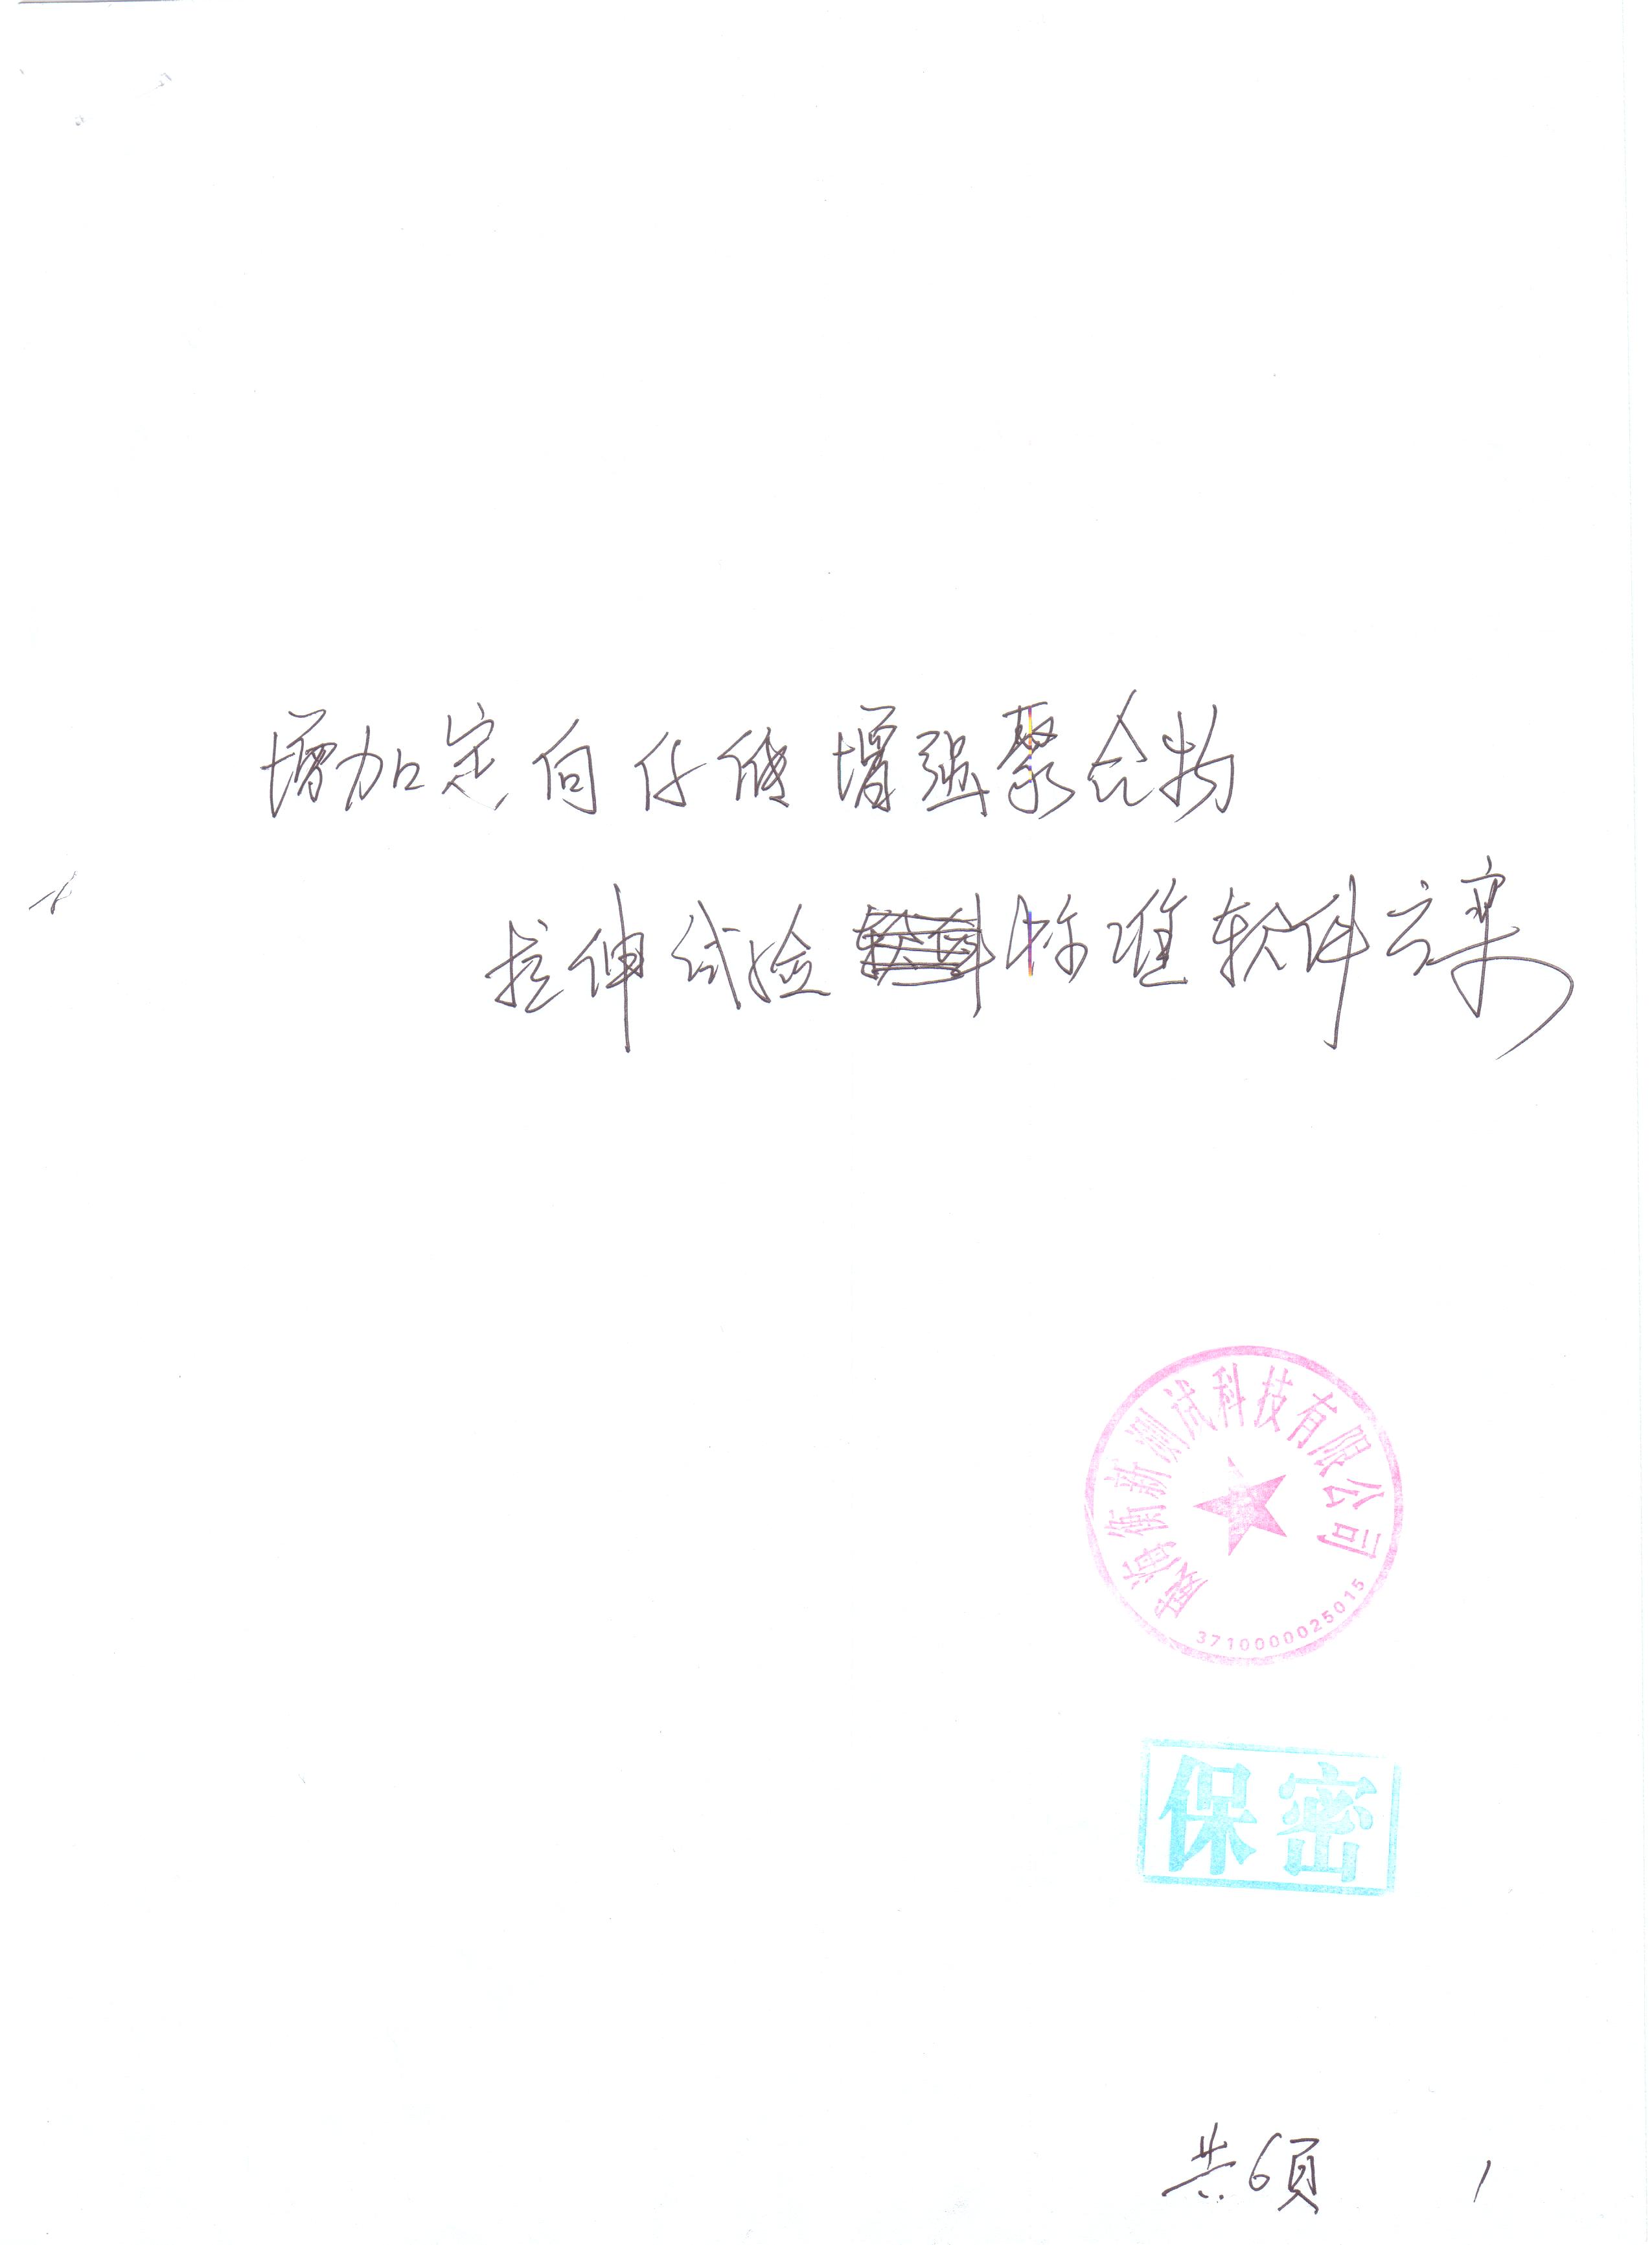 增加定向纤维增强聚合物
拉伸试验标准软件方案
威海衡新测试科技有限公司
3710000025015
保密
共6页 1